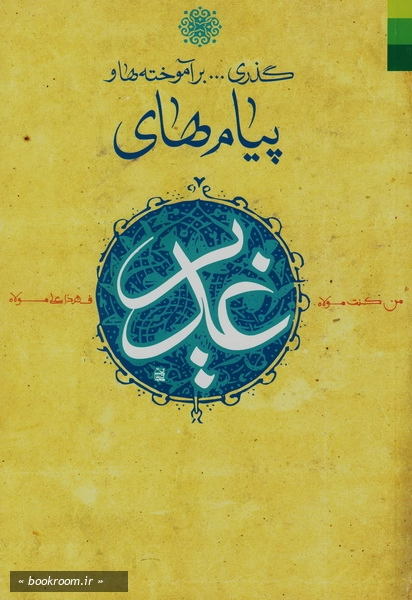 گذری... بر آموخته‌ها و
پیام‌های
غدیر
من کنت مولاه
فهذا علی مولاه
« bookroom.ir »